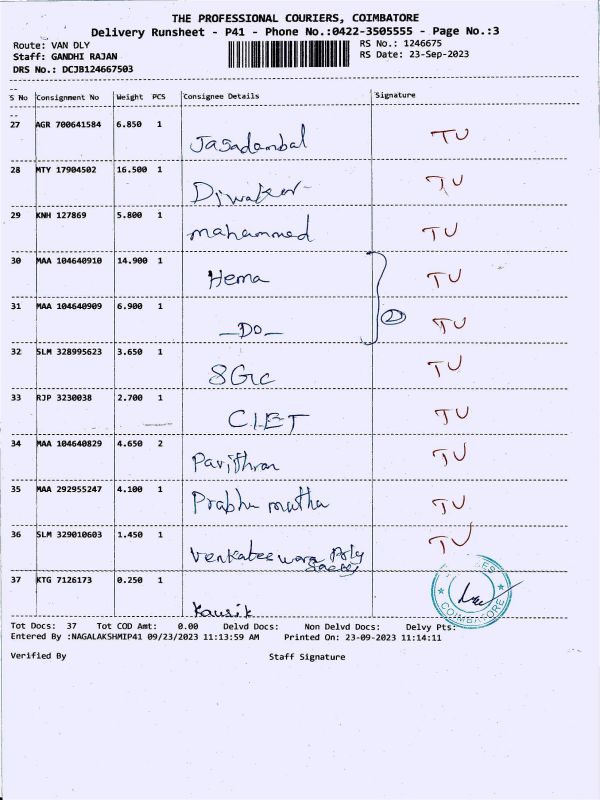 THE PROFESSIONAL COURIERS, COIMBATORE
Delivery Runsheet - P41 - Phone No.:0422-3505555 - Page No.:3
Route: VAN DLY RS No.: 1246675
Staff: GANDHI RAJAN RS Date: 23-Sep-2023
DRS No.: DCJB124667503
S No Consignment No Weight PCS Consignee Details Signature
27 AGR 700641584 6.850 1 Jagadambal TU
28 MTY 17904502 16.500 1 Diwaker TU
29 KNH 127869 5.800 1 mahammed TU
30 MAA 104640910 14.900 1 Hema TU
31 MAA 104640909 6.900 1 -Do- 2 TU
32 SLM 328995623 3.650 1 SGrc TU
33 RJP 3230038 2.700 1 C.I.ET TU
34 MAA 104640829 4.650 2 Pavithran TU
35 MAA 292955247 4.100 1 Prabhu mutha TU
36 SLM 329010603 1.450 1 Venkateswara Poly TU
37 KTG 7126173 0.250 1 Kausik
COIMBATORE
Tot Docs: 37 Tot COD Amt: 0.00 Delvd Docs: Non Delvd Docs: Delvy Pts:
Entered By :NAGALAKSHMIP41 09/23/2023 11:13:59 AM Printed On: 23-09-2023 11:14:11
Verified By Staff Signature